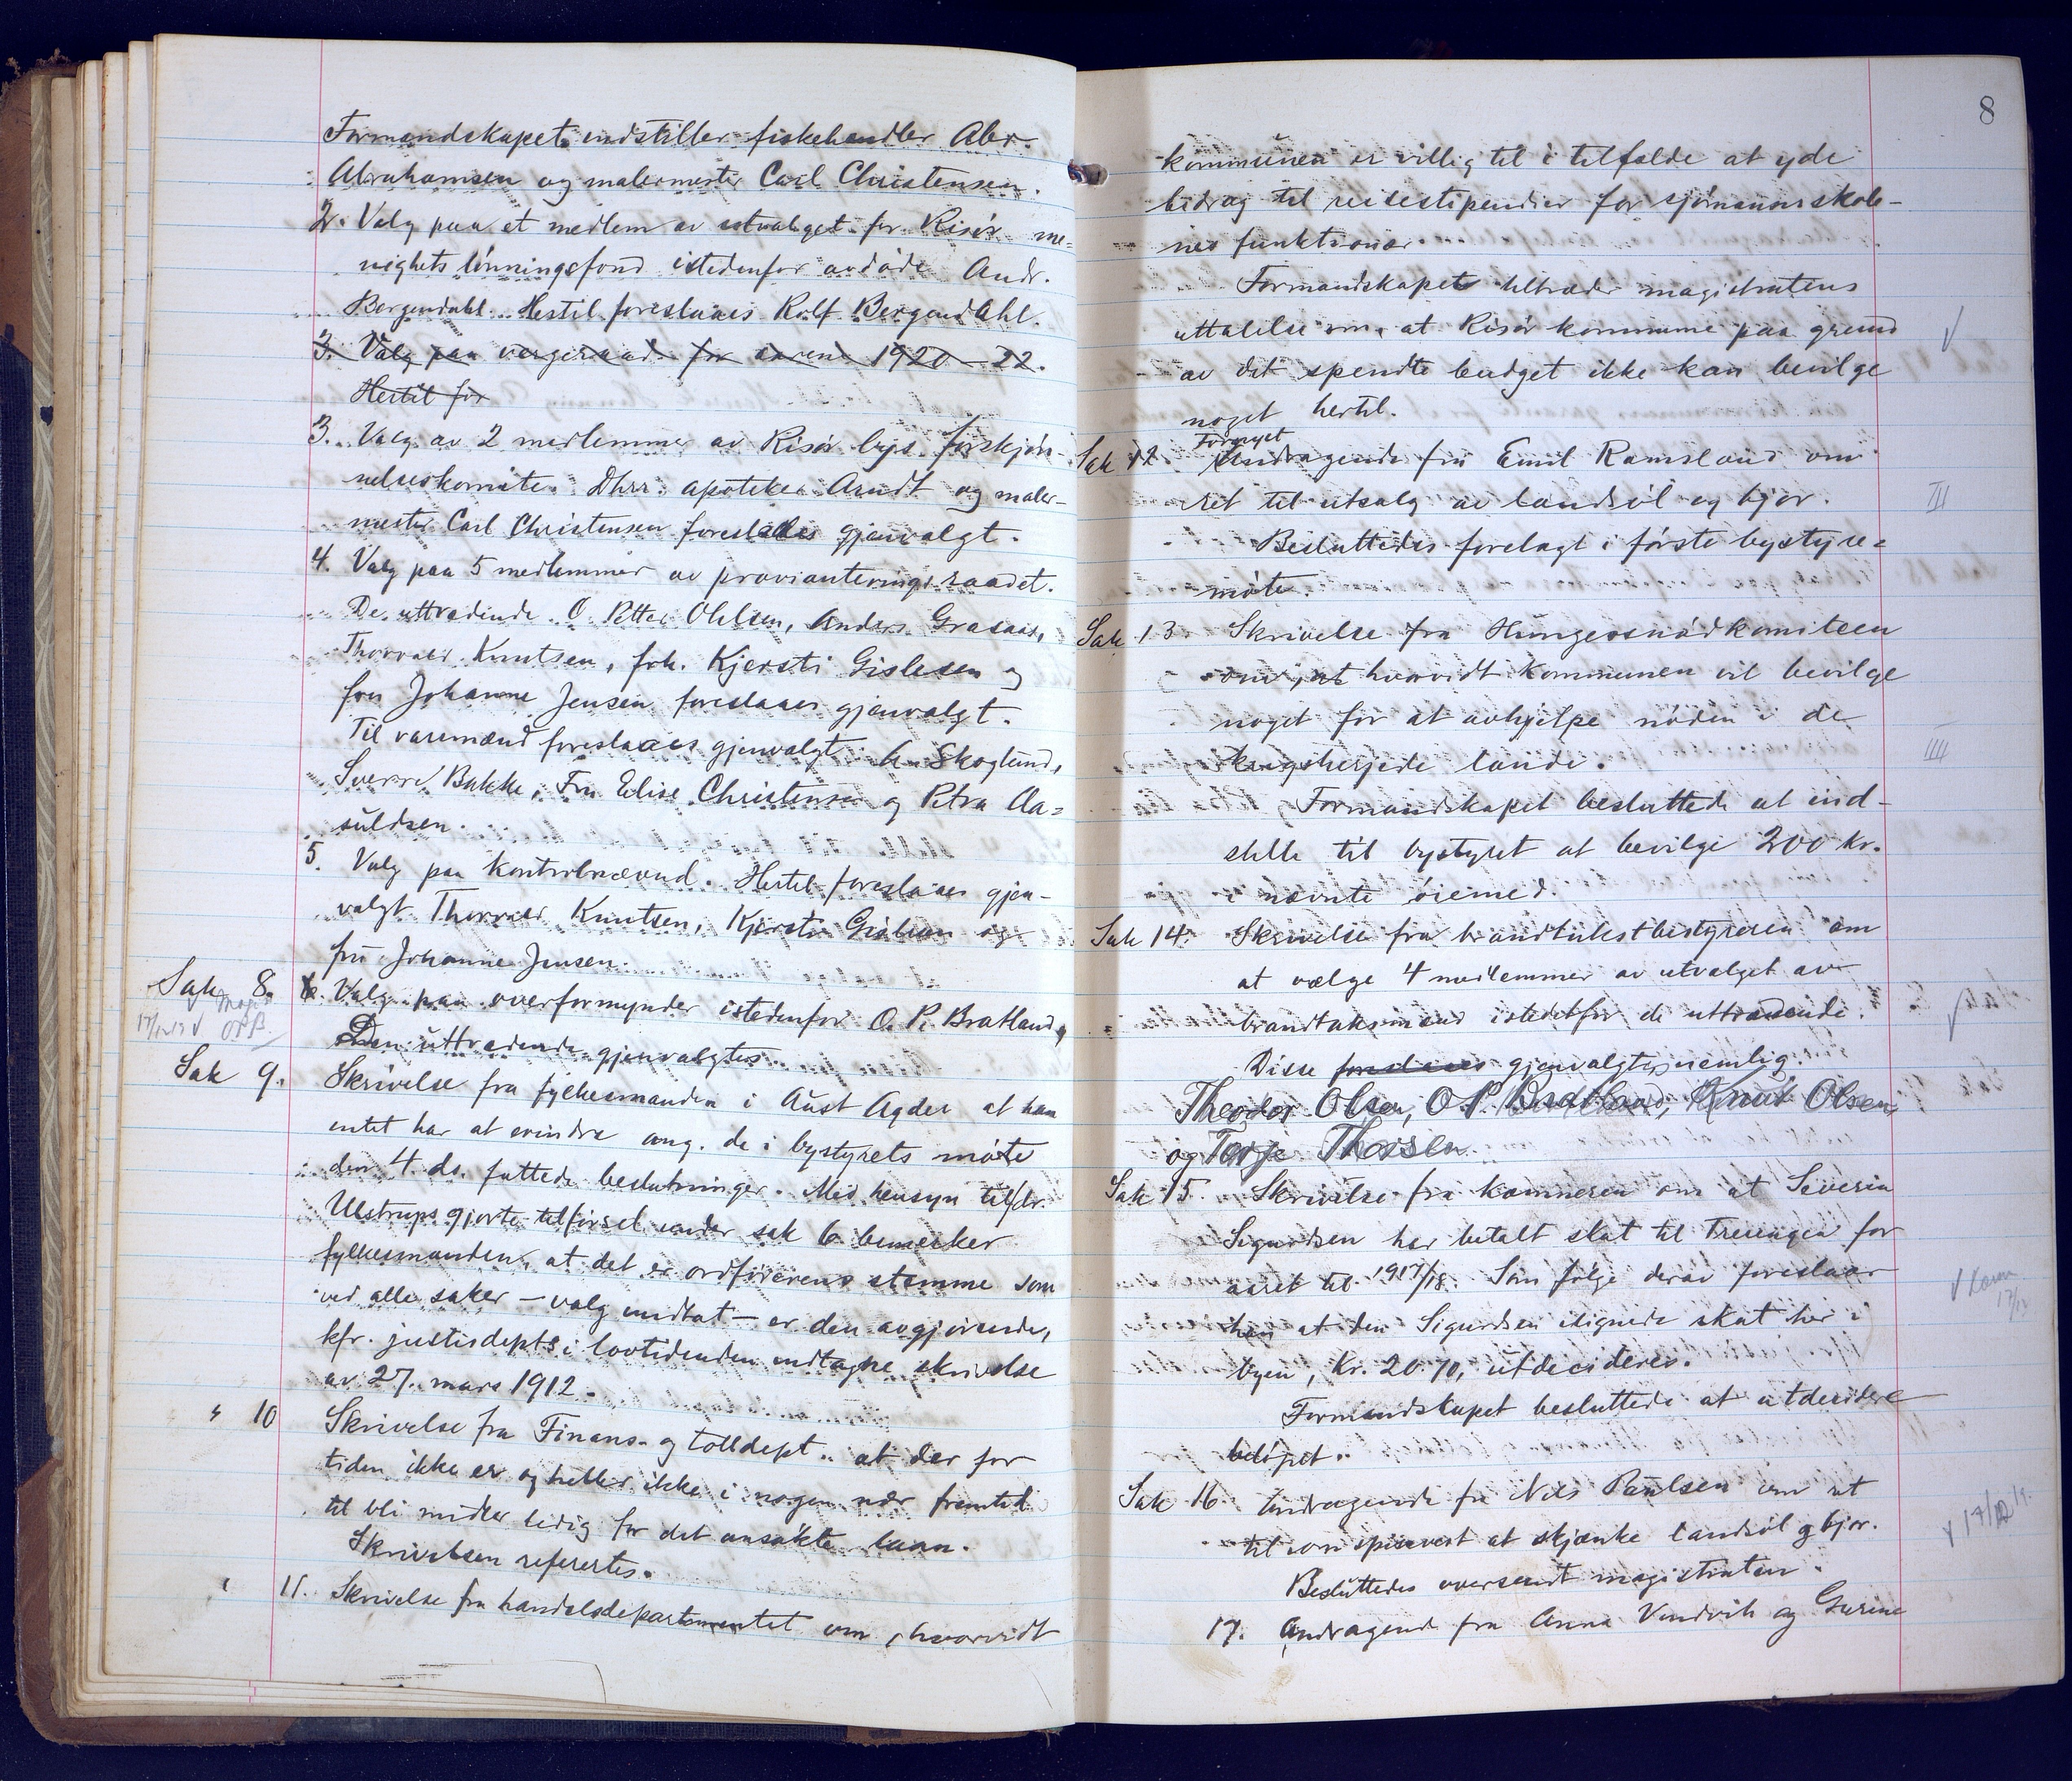 Formandskapet indstiller fiskehandler Abr.
Abrahamsen og malermester Carl Christensen.
2. Valg paa et medlem av utvalget for Risør me=
nighets lønningsfond istedenfor avdøde Andr.
Bergendahl. Hertil foreslaaes Rolf Bergendahl.
3. Valg paa vergeraad for aarene 1920-22.
Hertil for
3. Valg av 2 medlemmer av Risør byes forskjøn-
nelseskomite. Dhrr. apoteker Arndt og maler-
mester Carl Christensen foreslaaes gjenvalgt.
4. Valg paa 5 medlemmer av provianteringsraadet.
De uttrædende O. Petter Ohlsen, Anders Grasaas,
Thorvald Knutsen, frk. Kjersti Gislesen og
fru Johanne Jensen foreslaaes gjenvalgt.
Til varemænd foreslaaes gjenvalgt: A. Skoglund,
Sverre Bakke, Fru Elise Christensen og Petra Aa=
suldsen.
5. Valg paa kontrolnævnd. Hertil foreslaaes gjen-
valgt Thorvald Knutsen, Kjersti Gislesen og
fru Johanne Jensen.
Sak 8. 6. Valg paa overformynder istedenfor O. P. Bratland,
17/12 19 √ Magi. OPB.
Den uttrædende gjenvalgtes.
Sak 9. Skrivelse fra fylkesmanden i Aust Agder at han
intet har at erindre ang. de i bystyrets møte
den 4. ds. fattede beslutninger. Med hensyn til hr.
Ulstrups gjorte tilførsel under sak 6 bemerker
fylkesmanden, at det er ordførerens stemme som
ved alle saker – valg undtat – er den avgjørende,
kfr. justisdepts i lovtidenden indtagne skrivelse
av 27. mars 1912.
" 10 Skrivelse fra Finans- og tolldept. at der for
tiden ikke er og heller ikke i nogen nær fremtid
til bli midler ledig for det ansøkte laan.
Skrivelsen refertes.
" 11. Skrivelse fra handelsdepartementet om, hvorvidt
8
kommunen er villig til i tilfælde at yde
bidrag til reisestipendier for sjømannsskole-
nes funktionær.
Formandskapet tiltræder magistratens
uttalelse om, at Risør kommune paa grund
av det spendte budget ikke kan bevilge
noget hertil.
Sak 12. Fornyet Andragende fra Emil Ramsland om
ret til utsalg av landsøl og bjor.
III
Besluttedes forelagt i første bystyre=
møte.
Sak 13. Skrivelse fra Hungersnødkomiteen
om, at hvorvidt kommunen vil bevilge
noget for at avhjelpe nøden i de
krigsherjede lande.
IIII
Formandskapet besluttede at ind-
stille til bystyret at bevilge 200 kr.
i nævnte øiemed.
Sak 14. Skrivelse fra brandtakstbestyreren om
at vælge 4 medlemmer av utvalget av
brandtaksmænd istedetfor de uttrædende.
Disse foreslaaes gjenvalgtes, nemlig:
Theodor Olsen, O. P. Bratland, Knut Olsen,
og Terje Thorsen.
Sak 15. Skrivelse fra kæmneren om at Severin
Sigurdsen har betalt skat til Treungen for
aaret til 1917/18. Som følge derav foreslaar
17/12
han at den Sigurdsen ilignede skat her i
byen, Kr. 20.70, utdecideres.
Formandskapet besluttede at utdecidere
beløpet.
Sak 16. Andragende fra Nils Paulsen om ret
til som spisevert at skjænke landsøl og bjor.
√ 17/12 19.
Besluttedes oversendt magistraten.
17. Andragende fra Anna Vendvik og Gurine